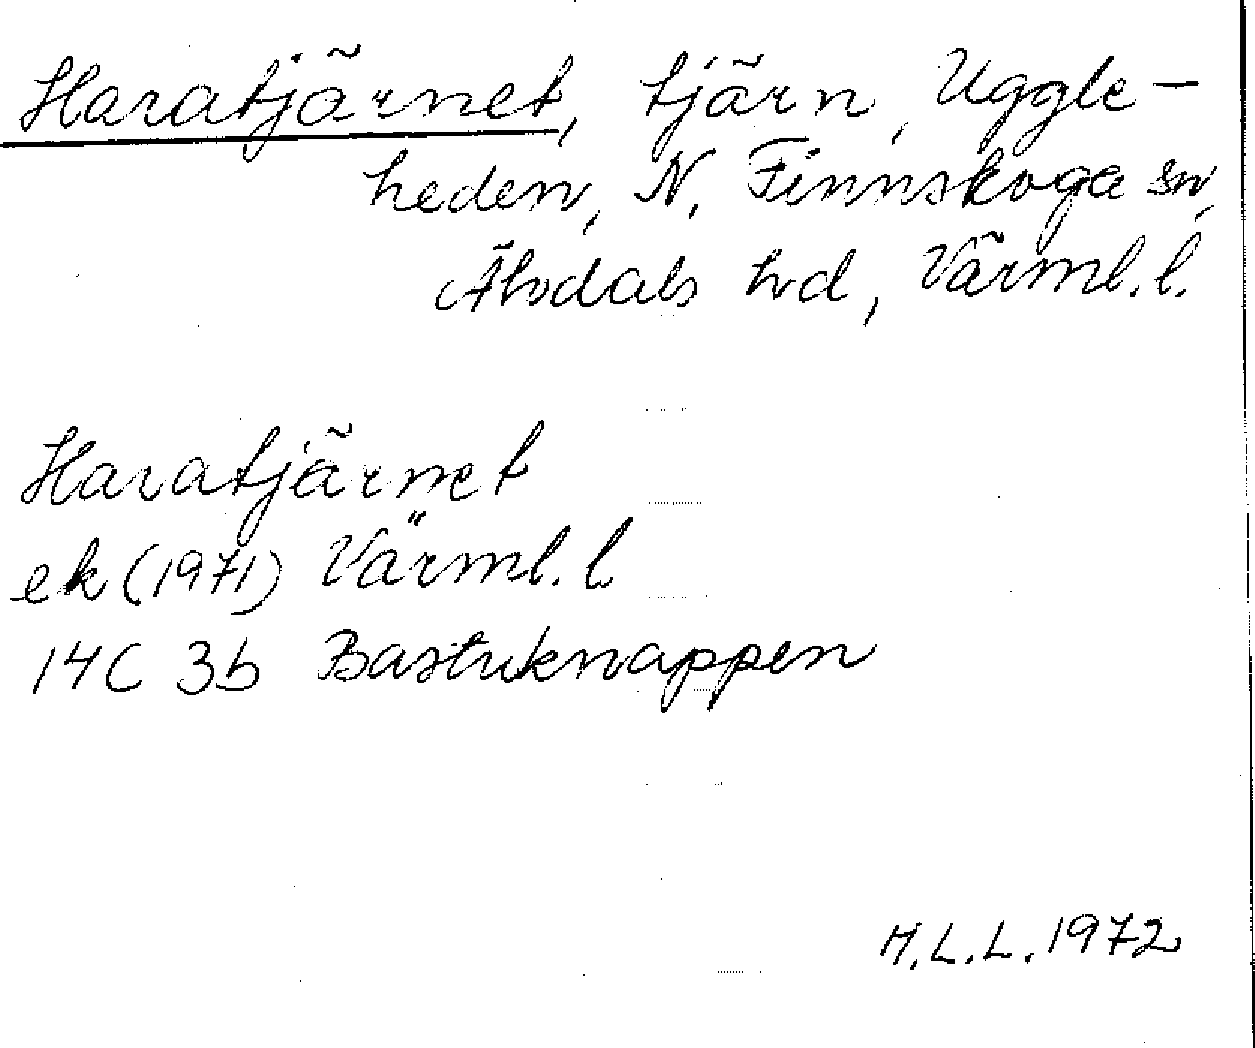 Haratjärnet, tjärn, Uggle-
heden, N. Finnskoga sn,
Älvdals hd, Värml. l.
Haratjärnet
ek (1971) Värml. l
14C 3b Bastuknappen
M.L.L. 1972